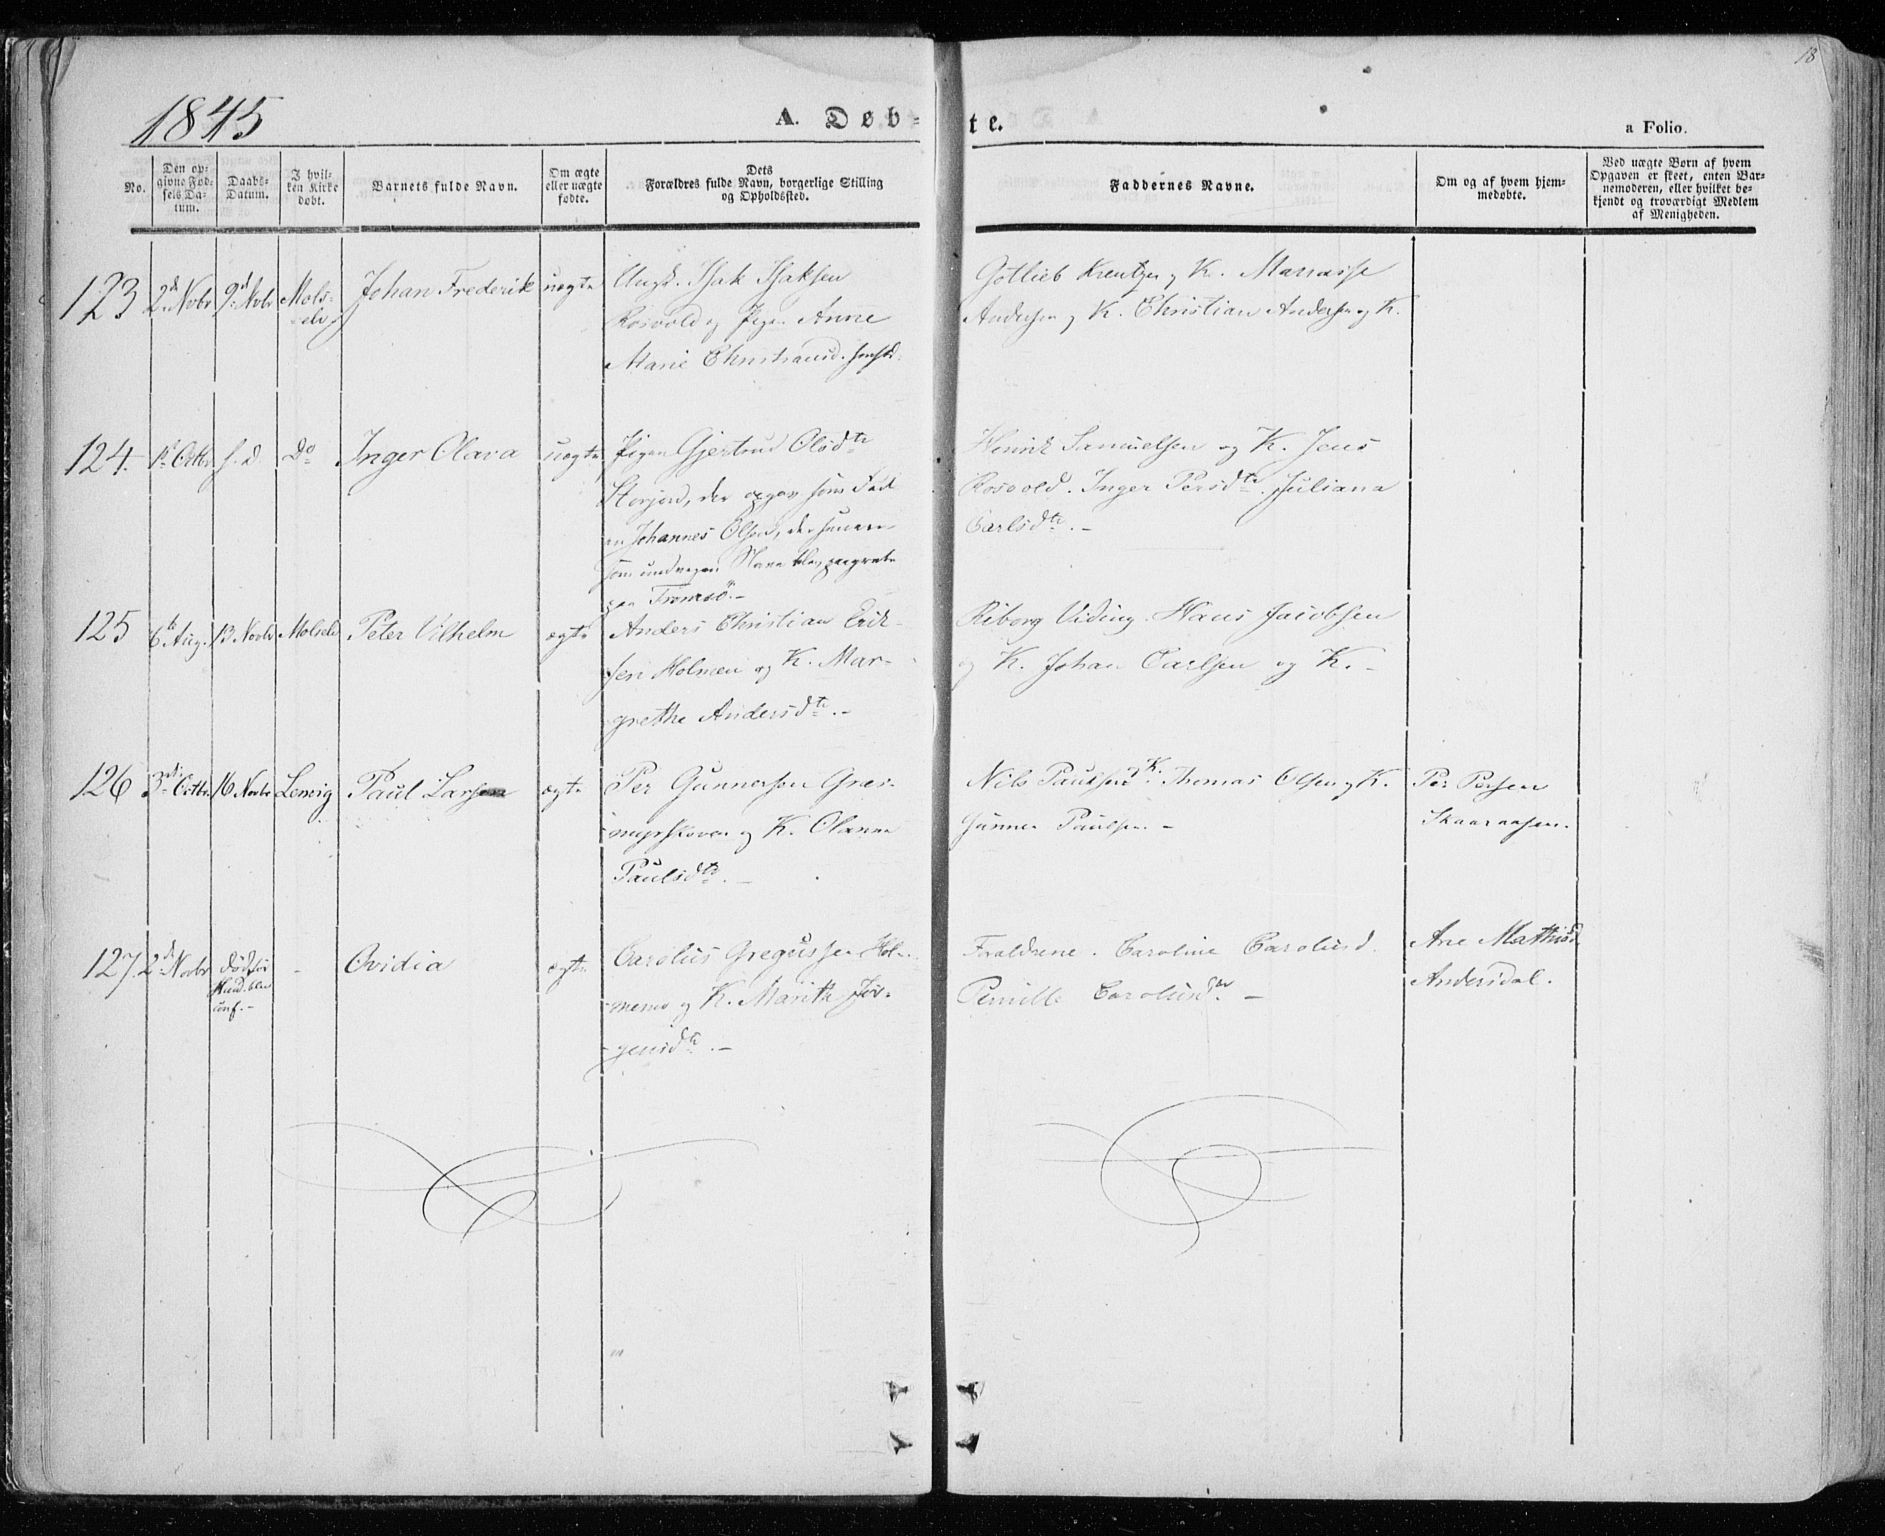 18
1845
A. Døb=
te.
a Folio.
No.
Den op=
givne Fød=
sels Da=
tum.
Daabs=
Datum.
I hvil=
ken Kirke
døbt.
Barnets fulde Navn.
Om ægte
eller uægte
fødte.
Dets
Forældres fulde Navn, borgerlige Stilling
og Opholdssted.
Faddernes Navne.
Om og af hvem hjem=
medøbte.
Ved uægte Børn af hvem
Opgaven er skeet, enten Bar=
nemoderen, eller hvilket be=
kjendt og troværdigt Medlem
af Menigheden.
123 2d Novbr 9d Novbr Mols=
elv
Johan Frederik uægte
Ungk. Isak Isaksen
Rosvold og Pigen Anne
Marie Christiansd.
Gotlieb Kreutzer og K. Manasse
Andersen og K. Christian Andersen og K.
124. 1st Octbr s. d. Do Inger Olava uægte
Pigen Gjertrud Olsdtr
Storjord, der opgav som Fad
Johannes Olsen, der senere
som undvegen Slave blev paagreben
paa Tromsö.-
Henrik Samuelsen og K. Jens
Rosvold. Inger Persdtr. Juliana
Carlsdtr.-
125 6te Aug. 13 Novbr Molselv Peter Vilhelm ægte
Anders Christian Erik-
sen Holmen og K. Mar-
grethe Andersdtr.-
Riborg Viding. Hans Jacobsen
og K. Johan Carlsen og K.-
126 3die Octbr. 16 Novbr Lenvig Paul Larsen ægte
Per Gunnersen Græs-
myrskoven og K. Olanna
Paulsdtr.-
Nils Paulsen og K. Thomas Olsen og K.
Gunner Paulsen.-
Per Persen
Skaaraasen.
127. 2d Novbr död før
Haand. blev
conf.-
-
Ovidia ægte
Carolus Gregussen Hol-
menes og K. Marith Jör-
gensdtr.-
Foraldrene. Caroline Carolusd.
Pernille Carolusdtr.-
Ane Mathisd
Andersdal.